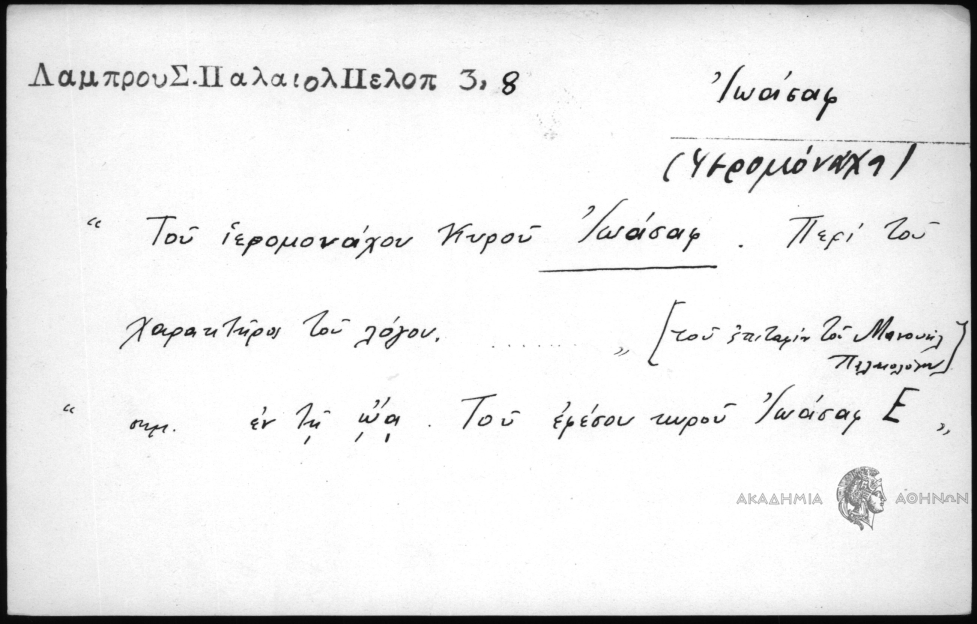 ΛαμπρουΣ.ΠαλαιολΠελοπ 3,8
Ἰωάσαφ
(Ἱερομόναχη)
“ Τοῦ ἱερομονάχου Κυροῦ Ἰωάσαφ . Περί τοῦ
χαρακτῆρος τοῦ λόγου. ........ „ [τοῦ ἐπιταφίου τοῦ Μανουὴλ
Παλαιολόγου]
“ σημ. ἐν τῇ ᾤα . Τοῦ ἐφέσου κυροῦ Ἰωάσαφ Ε „
ΑΚΑΔΗΜΙΑ ΑΘΗΝΩΝ